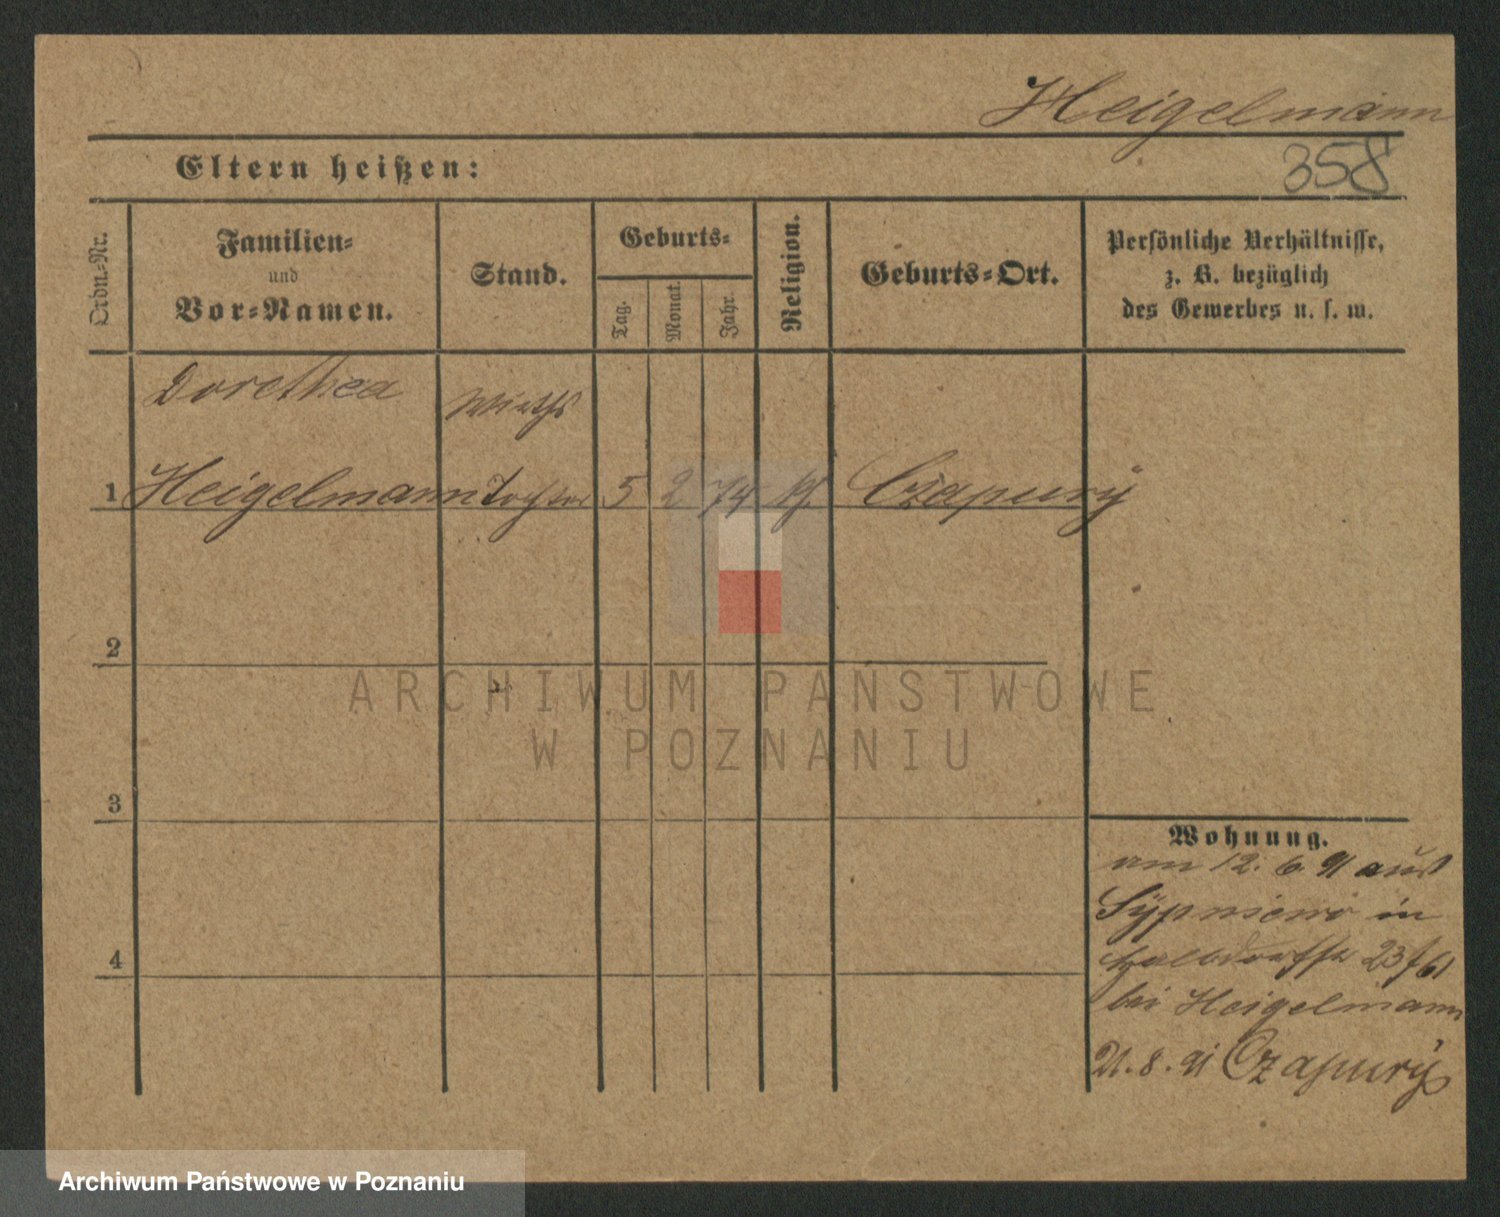 Heigelmann
Eltern heißen:
358
Ordn.-Nr.
Familien-
und
Vor-Namen.
Stand.
Geburts-
Tag.
Monat.
Jahr.
Religion.
Geburts-Ort.
Persönliche Verhältnisse,
z. B. bezüglich
des Gewerbes u. s. w.
Dorothea Wirths
1 Heigelmann Tochter 5 2 74 k. Czapury
2
3
4
Wohnung.
am 12. 6. 91 aus
Sypniewo in
Halbdorfstr 23 / 61
bei Heigelmann
21. 8. 91 Czapury
ARCHIWUM PAŃSTWOWE
W POZNANIU
Archiwum Państwowe w Poznaniu